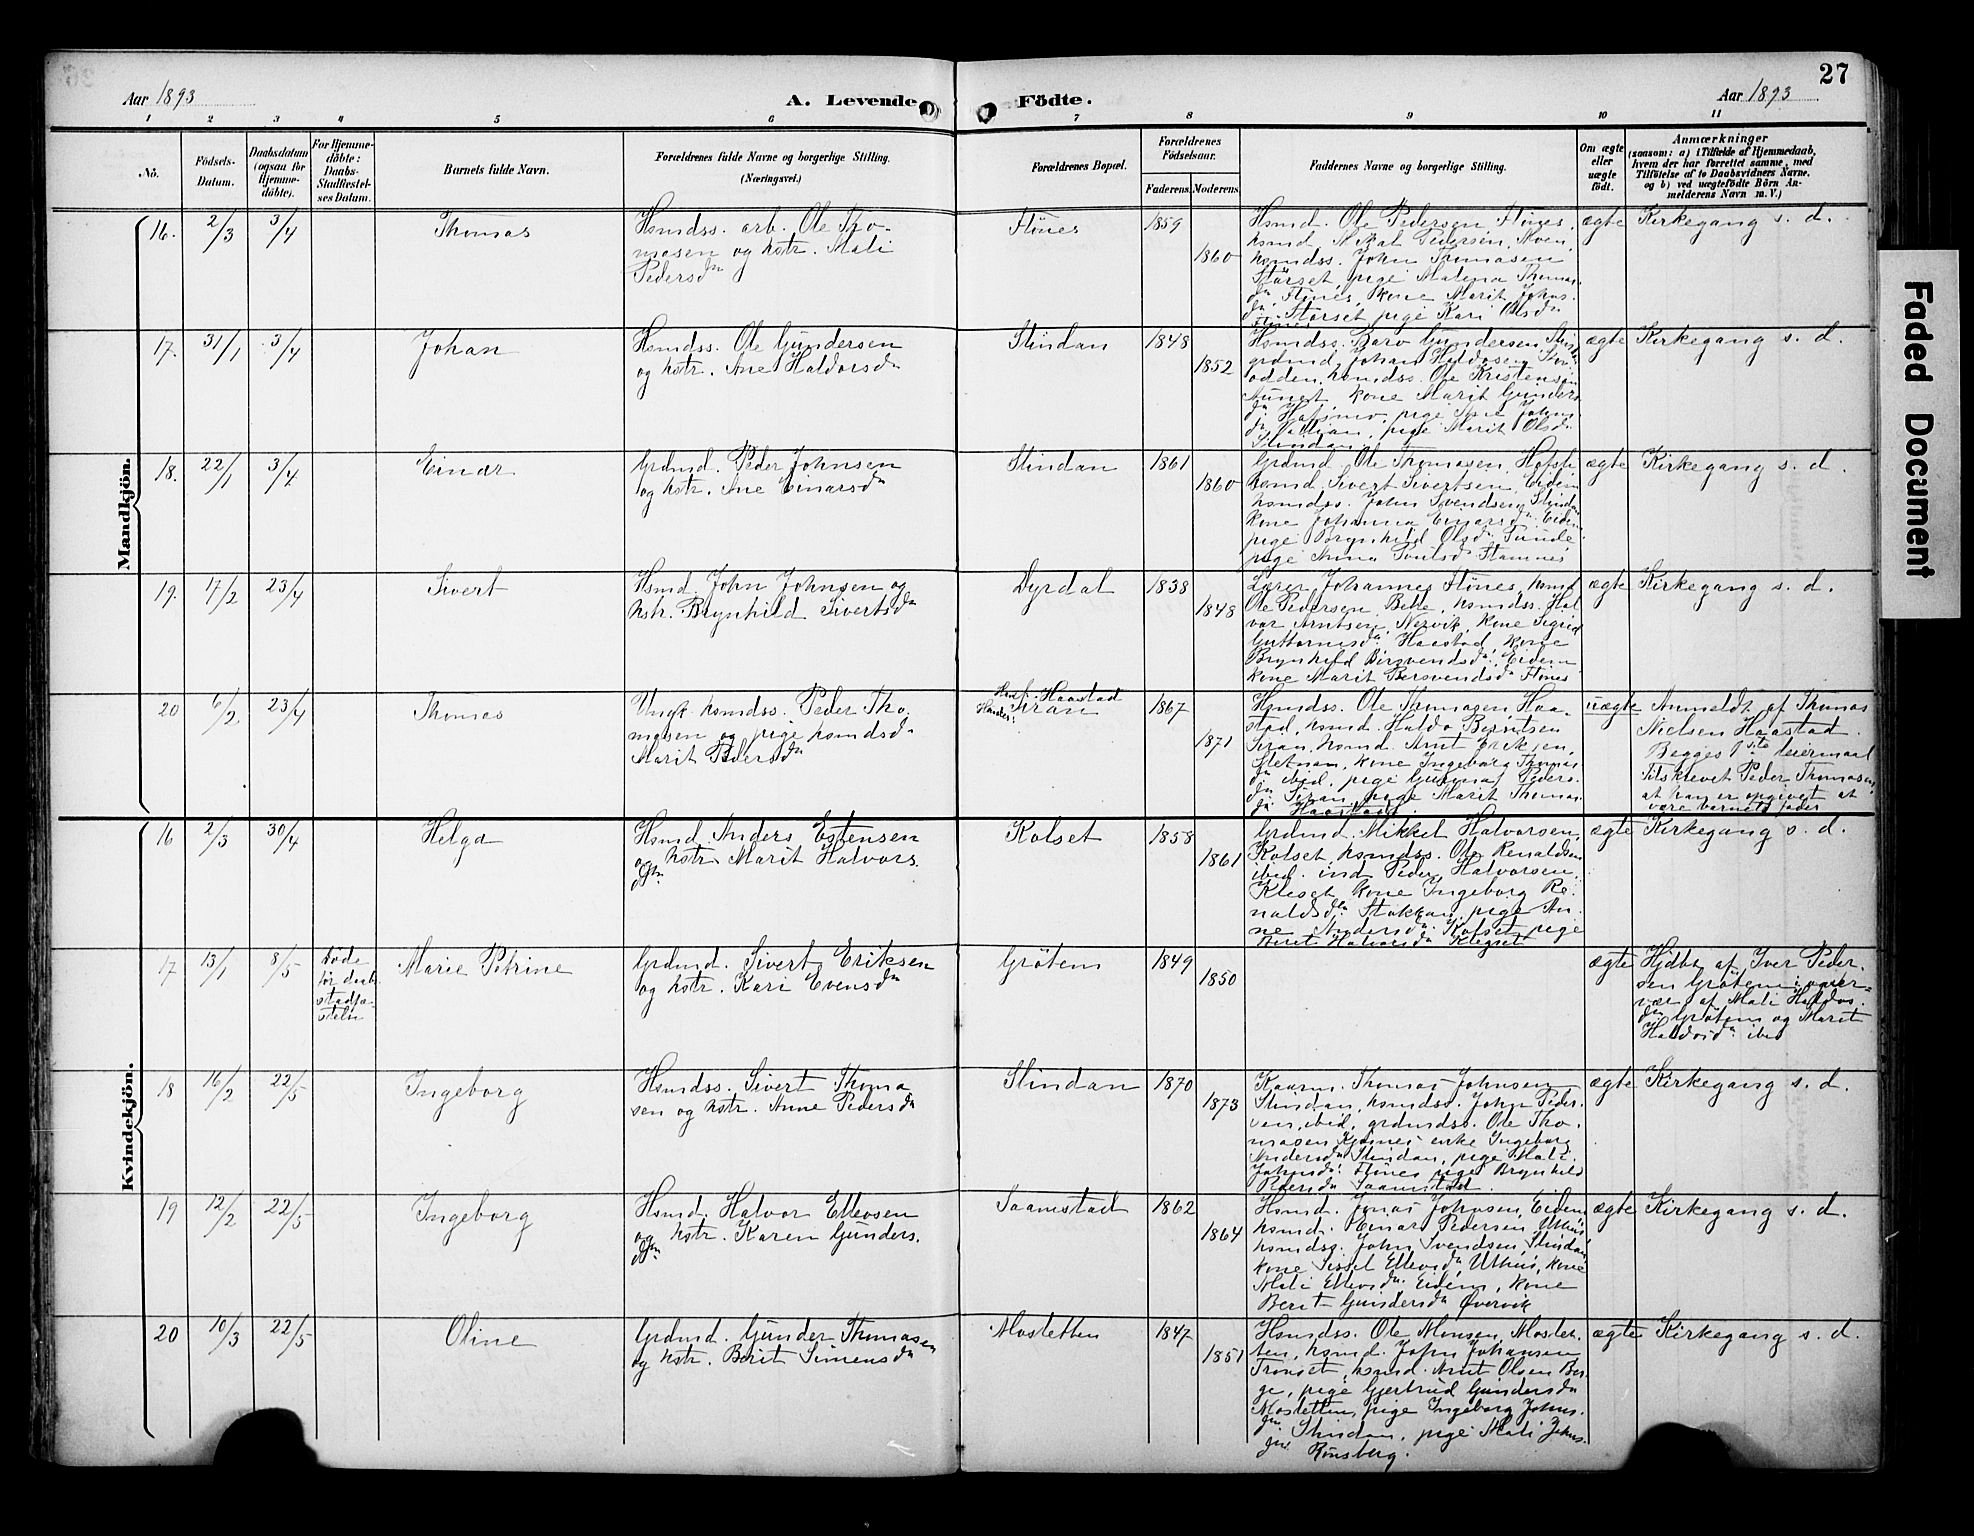 27
Aar 1893
A. Levende
Födte.
Aar 1893
1 2 3 4 5 6 7 8 9 10 11
No.
Födsels-Datum.
Daabsdatum (ogsaa for Hjemme-döbte).
For Hjemme-döbte: Daabs-Stadfæstel-ses Datum.
Barnets fulde Navn.
Forældrenes fulde Navne og borgerlige Stilling.
(Næringsvei.)
Forældrenes Bopæl.
Forældrenes Födselsaar.
Faderens. Moderens.
Faddernes Navne og borgerlige Stilling.
Om ægte eller uægte födt.
Anmærkninger
(saasom: a) i Tilfælde af Hjemmedaab,
hvem der har forrettet samme, med
Tilföielse af to Daabsvidners Navne,
og b) ved uægtefödte Börn An-
melderens Navn m. V.)
Mandkjön.
16. 2/3 3/4 Thomas
Hsmdss. arb. Ole Tho-
masen og hstr. Mali
Pedersdtr
Flönes 1859 1860
Hsmd. Ole Pedersen Flönes,
hsmd. Mikal Pedersen,
hsmdss. John Thomasen
Störset, pige Malena Thomas-
dtr. Flönes, kone Marit Johns-
dtr. Störset, pige Kari Olsdtr
Flönes
ægte Kirkegang s. d.
17. 31/1 3/4 Johan
Hsmdss. Ole Gundersen
og hstr. Ane Haldorsdtr
Slindan 1848 1852
Hsmdss. Gundersen
grdmd. Johan Haldosen
odden, hsmdss. Ole Kristensen
kone Marit Gunders
dtr. pige Ane Johns-
dtr. pige Marit Olsdtr.
Slindan
ægte Kirkegang s. d.
18. 22/1 3/4 Einar
Grdmd. Peder Johnsen
og hstr. Ane Einarsdtr
Slindan 1861 1860
Grdmd. Ole Thomasen,
hsmd. Sivert Sivertsen, Eidem
hsmdss. John Svendsen, Slindan
kone Johanna Einarsdtr. Eidem
pige Brynhild Olsdtr.
pige Anna Stamnes
ægte Kirkegang s. d.
19. 17/2 23/4 Sivert
Hsmd. John Johnsen og
hstr. Brynhild Sivertsdtr
Dyrdal 1838 1848
Lærer Johannes Flönes, hsmd.
Ole Pedersen Belle, hsmdss. Hal
vor Arntsen, Nervik, kone Sigrid
Guttormsdtr. Haastad, kone
Brynhild Bersvendsdtr. Eidem
kone Marit Bersvendsdtr Flönes
ægte Kirkegang s. d.
20 6/2 23/4 Thomas
Ungk. hsmdss. Peder Tho-
masen og pige hsmdsd.
Marit Pedersdtr
Haastad
Hendes: Siran
1867 1871
Hsmdss. Ole Thomasen Haa-
stad, hsmd. Haldo Berntsen
Siran, hsmd. Arnt Eriksen,
Sletnam, kone Ingeborg Thomas
dtr ibid, pige Guruna Peders-
dtr. Siran, pige Marit Thomas-
dtr Haastad
uægte Anmeldt af Thomas
Nielsen Haastad.
Begges 1ste leiermaal
Tilskrevet Peder Thomasen,
at han er opgivet at
være barnets fader
Kvindekjön.
16 2/3 30/4 Helga
Hsmd. Anders Estensen
og hstr. Marit Halvors
dtr.
Kolset 1858 1861
Grdmd. Mikkel Halvorsen,
Kolset, hsmdss. Ole Renaldsen
ibid. ind. Peder Halvorsen,
Kleset, kone Ingeborg Re-
naldsdtr. Stokkan, pige An-
ne Andersdtr. Kolset, pige
Berit Halvorsdtr Klegset
ægte Kirkegang s. d.
17 13/1 8/5 Döde
för daab
stadfæ-
stelse
Marie Petrine
Grdmd. Sivert Eriksen
og hstr. Kari Evensdtr
Grötem 1849 1850
ægte Hjdbt. af Iver Peder-
sen Grötem i nær-
vær af Mali Haldos-
dtr Grötem og Marit
Haldosdtr ibid
18 16/2 22/5 Ingeborg
Hsmdss. Sivert Thoma
sen og hstr. Anne Pedersdtr
Slindan 1870 1873
Kaarm. Thomas Johnsen
Slindan, hsmdss. John Peder-
sen, ibid, grdmdss. Ole Tho-
masen enke Ingeborg
Andersdtr Slindan, pige Mali
Johnsdtr. Flönes, pige Brynhild
Pedersdtr Saamstad.
ægte Kirkegang s. d.
19 12/2 22/5 Ingeborg
Hsmd. Halvor Ellevsen
og hstr. Karen Gunders-
dtr.
Saamstad 1862 1864
Hsmd. Jonas Johnsen, Eidem
hsmd. Einar Pedersen Uthus,
hsmdss. John Svendsen, Slindan,
kone Sissel Ellevsdtr Uthus, kone
Mali Ellevsdtr. Eidem, kone
Berit Gundersdtr Övervik
ægte Kirkegang s. d.
20 10/3 22/5 Oline
Grdmd. Gunder Thomasen
og hstr. Berit Simensdtr
Mosletten 1847 1851
Hsmdss. Ole Monsen, Moslet-
ten, hsmd. John Johansen
hsmd. Arnt Olsen Ber-
ge, pige Gjertrud Gundersdtr
Mosletten, pige Ingeborg Johns-
dtr Slindan, pige Mali Johns-
dtr Rönsberg.
ægte Kirkegang s. d.
Faded Document